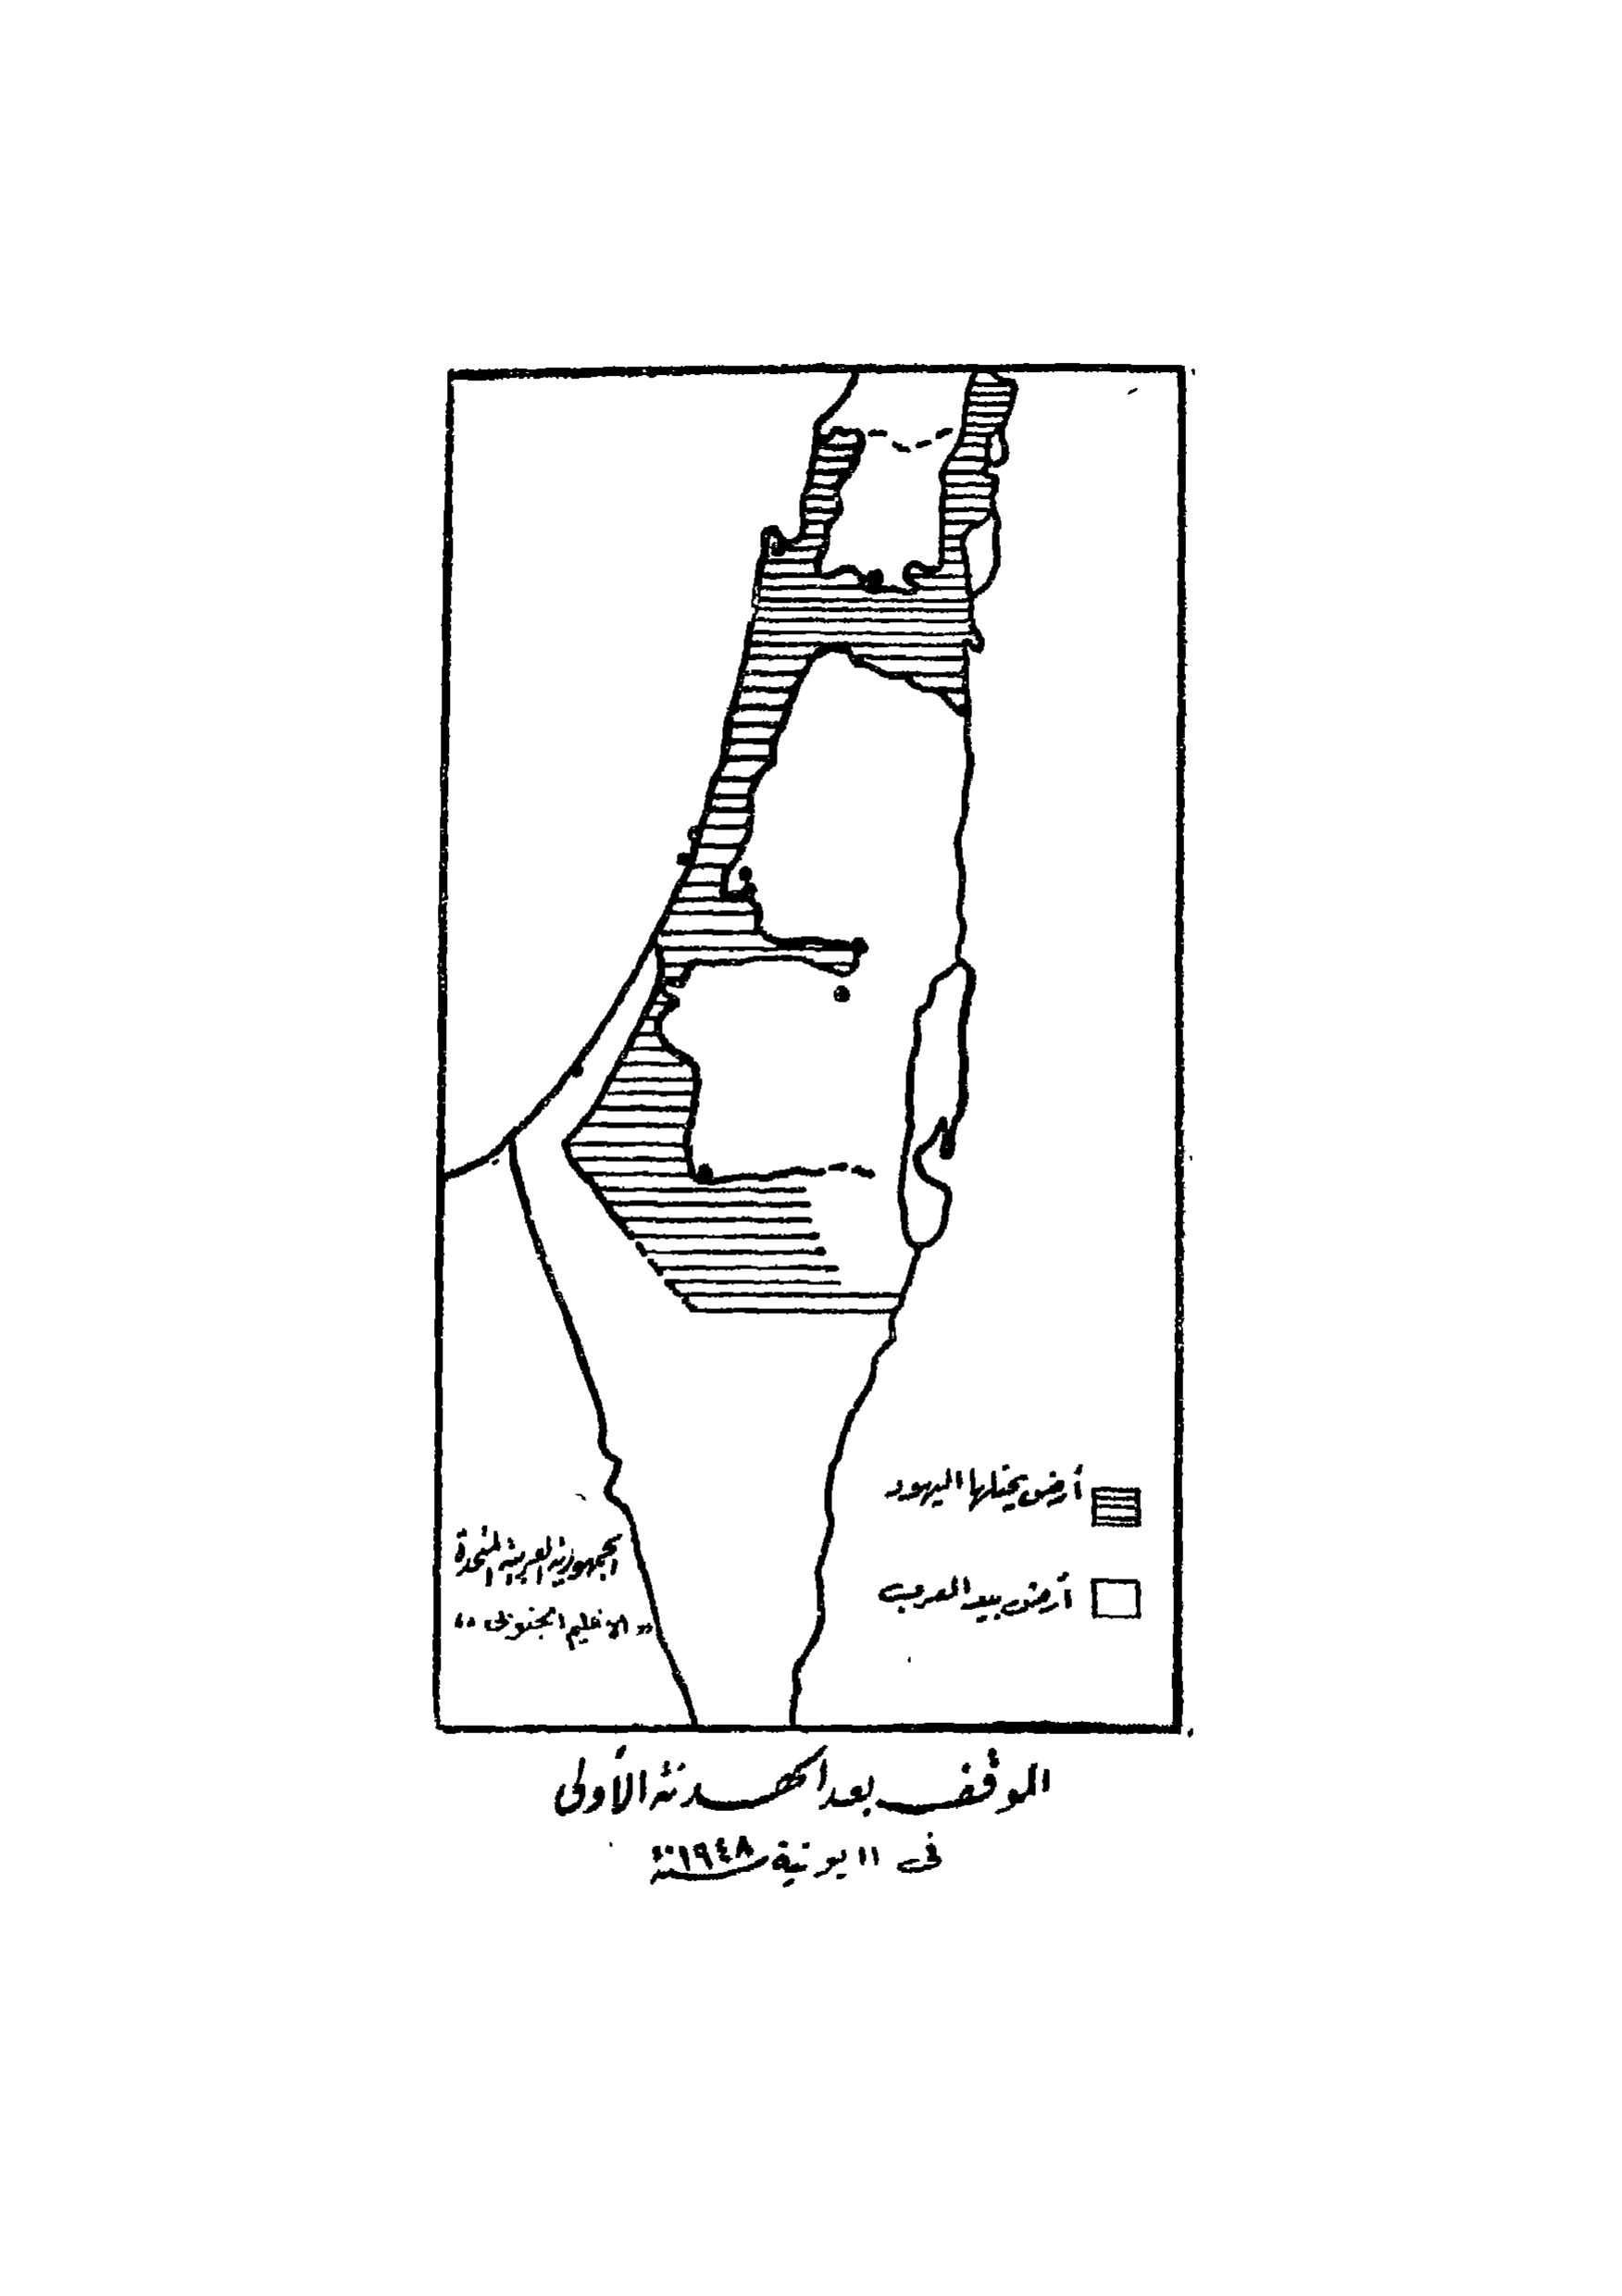 أرض يحتلها اليهود
أرض بيد العرب
الجمهورية العربية المتحدة
« الاقليم الجنوبى »
الموقف بعد الهدنة الأولى
فى ١١ يونية سنة ١٩٤٨